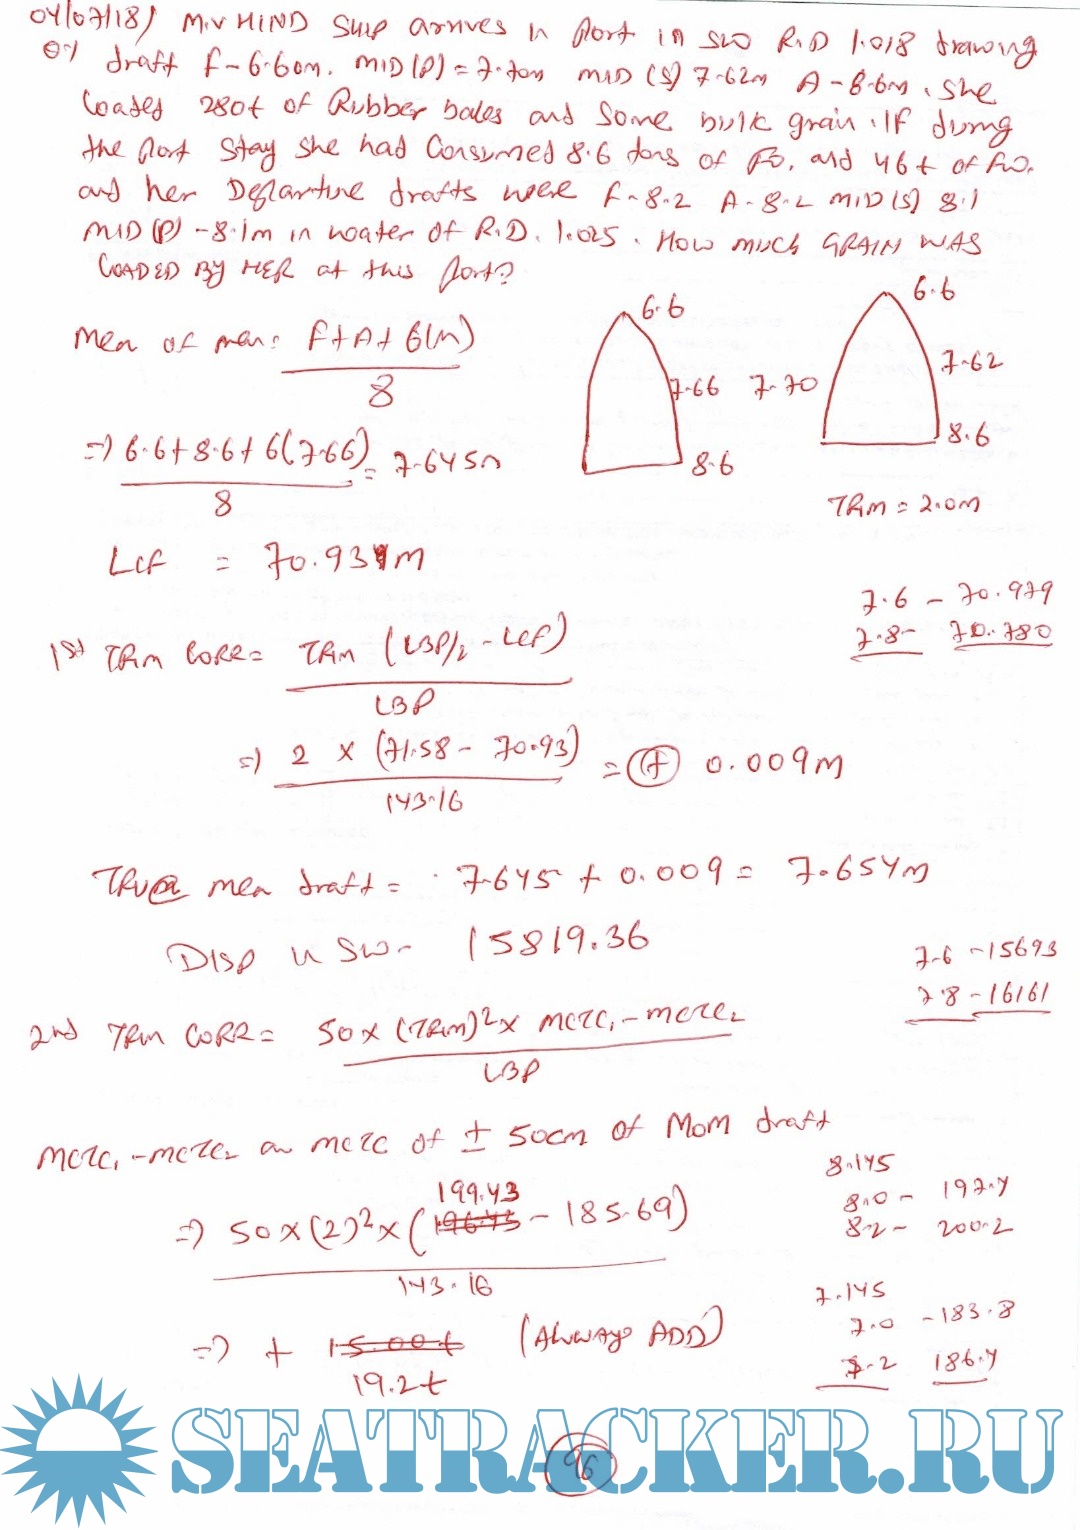 04/07/18) M.V HIND SHIP arrives in Port in SW R.D 1.018 drawing
Q7 draft F-6.60m. MID(P) = 7.70m MID (S) 7.62m A-8.6m. She
loaded 280t of Rubber bales and some bulk grain. If during
the Port stay she had Consumed 8.6 tons of FO. and 46 t of FW.
and her Departure drafts were F-8.2 A-8.2 MID(S) 8.1
MID(P) -8.1m in water of R.D. 1.025. HOW MUCH GRAIN WAS
LOADED BY HER at this Port?
6.6 6.6
Mean of mean: F+A+6(M)
8
7.66 7.70 7.62
8.6 8.6
=> 6.6+8.6+6(7.66) = 7.645m
8
TRIM = 2.0M
LCF = 70.934M
7.6 - 70.979
7.8- 70.780
1st TRIM CORR= TRIM (LBP/2 - LCF)
LBP
=> 2 x (71.58 - 70.93) = (+) 0.009M
143.16
True mean draft = 7.645 + 0.009 = 7.654M
DISP in SW- 15819.36
7.6 -15693
7.8 -16161
2nd TRIM CORR = 50 x (TRIM)² x MCTC1 - MCTC2
LBP
MCTC1 - MCTC2 are MCTC of ± 50cm of MOM draft
8.145
8.0 - 197.4
8.2 - 200.2
199.43
=> 50 x (2)² x ( 196.43 - 185.69)
143.16
7.145
7.0 - 183.8
7.2 186.4
=> + 15.00t (ALWAYS ADD)
19.2t
SEATRACKER.RU
96